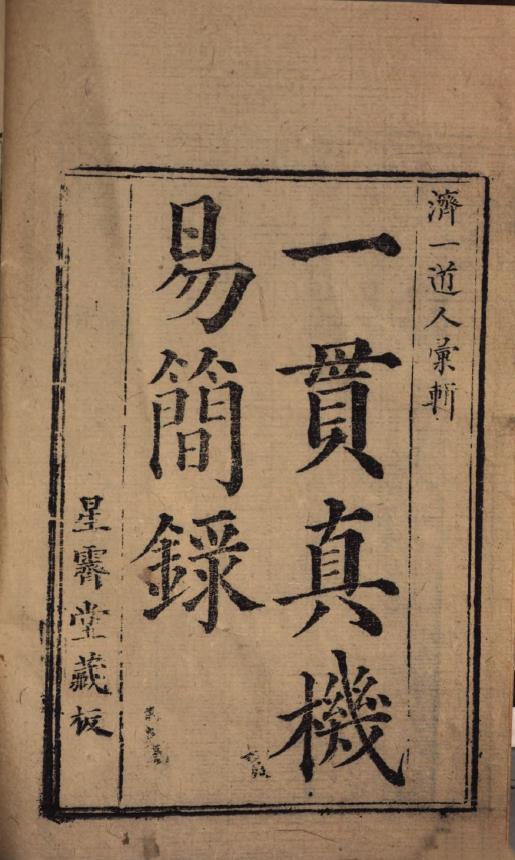 濟一道人彙輯
一貫真機
易簡錄
星霽堂藏板